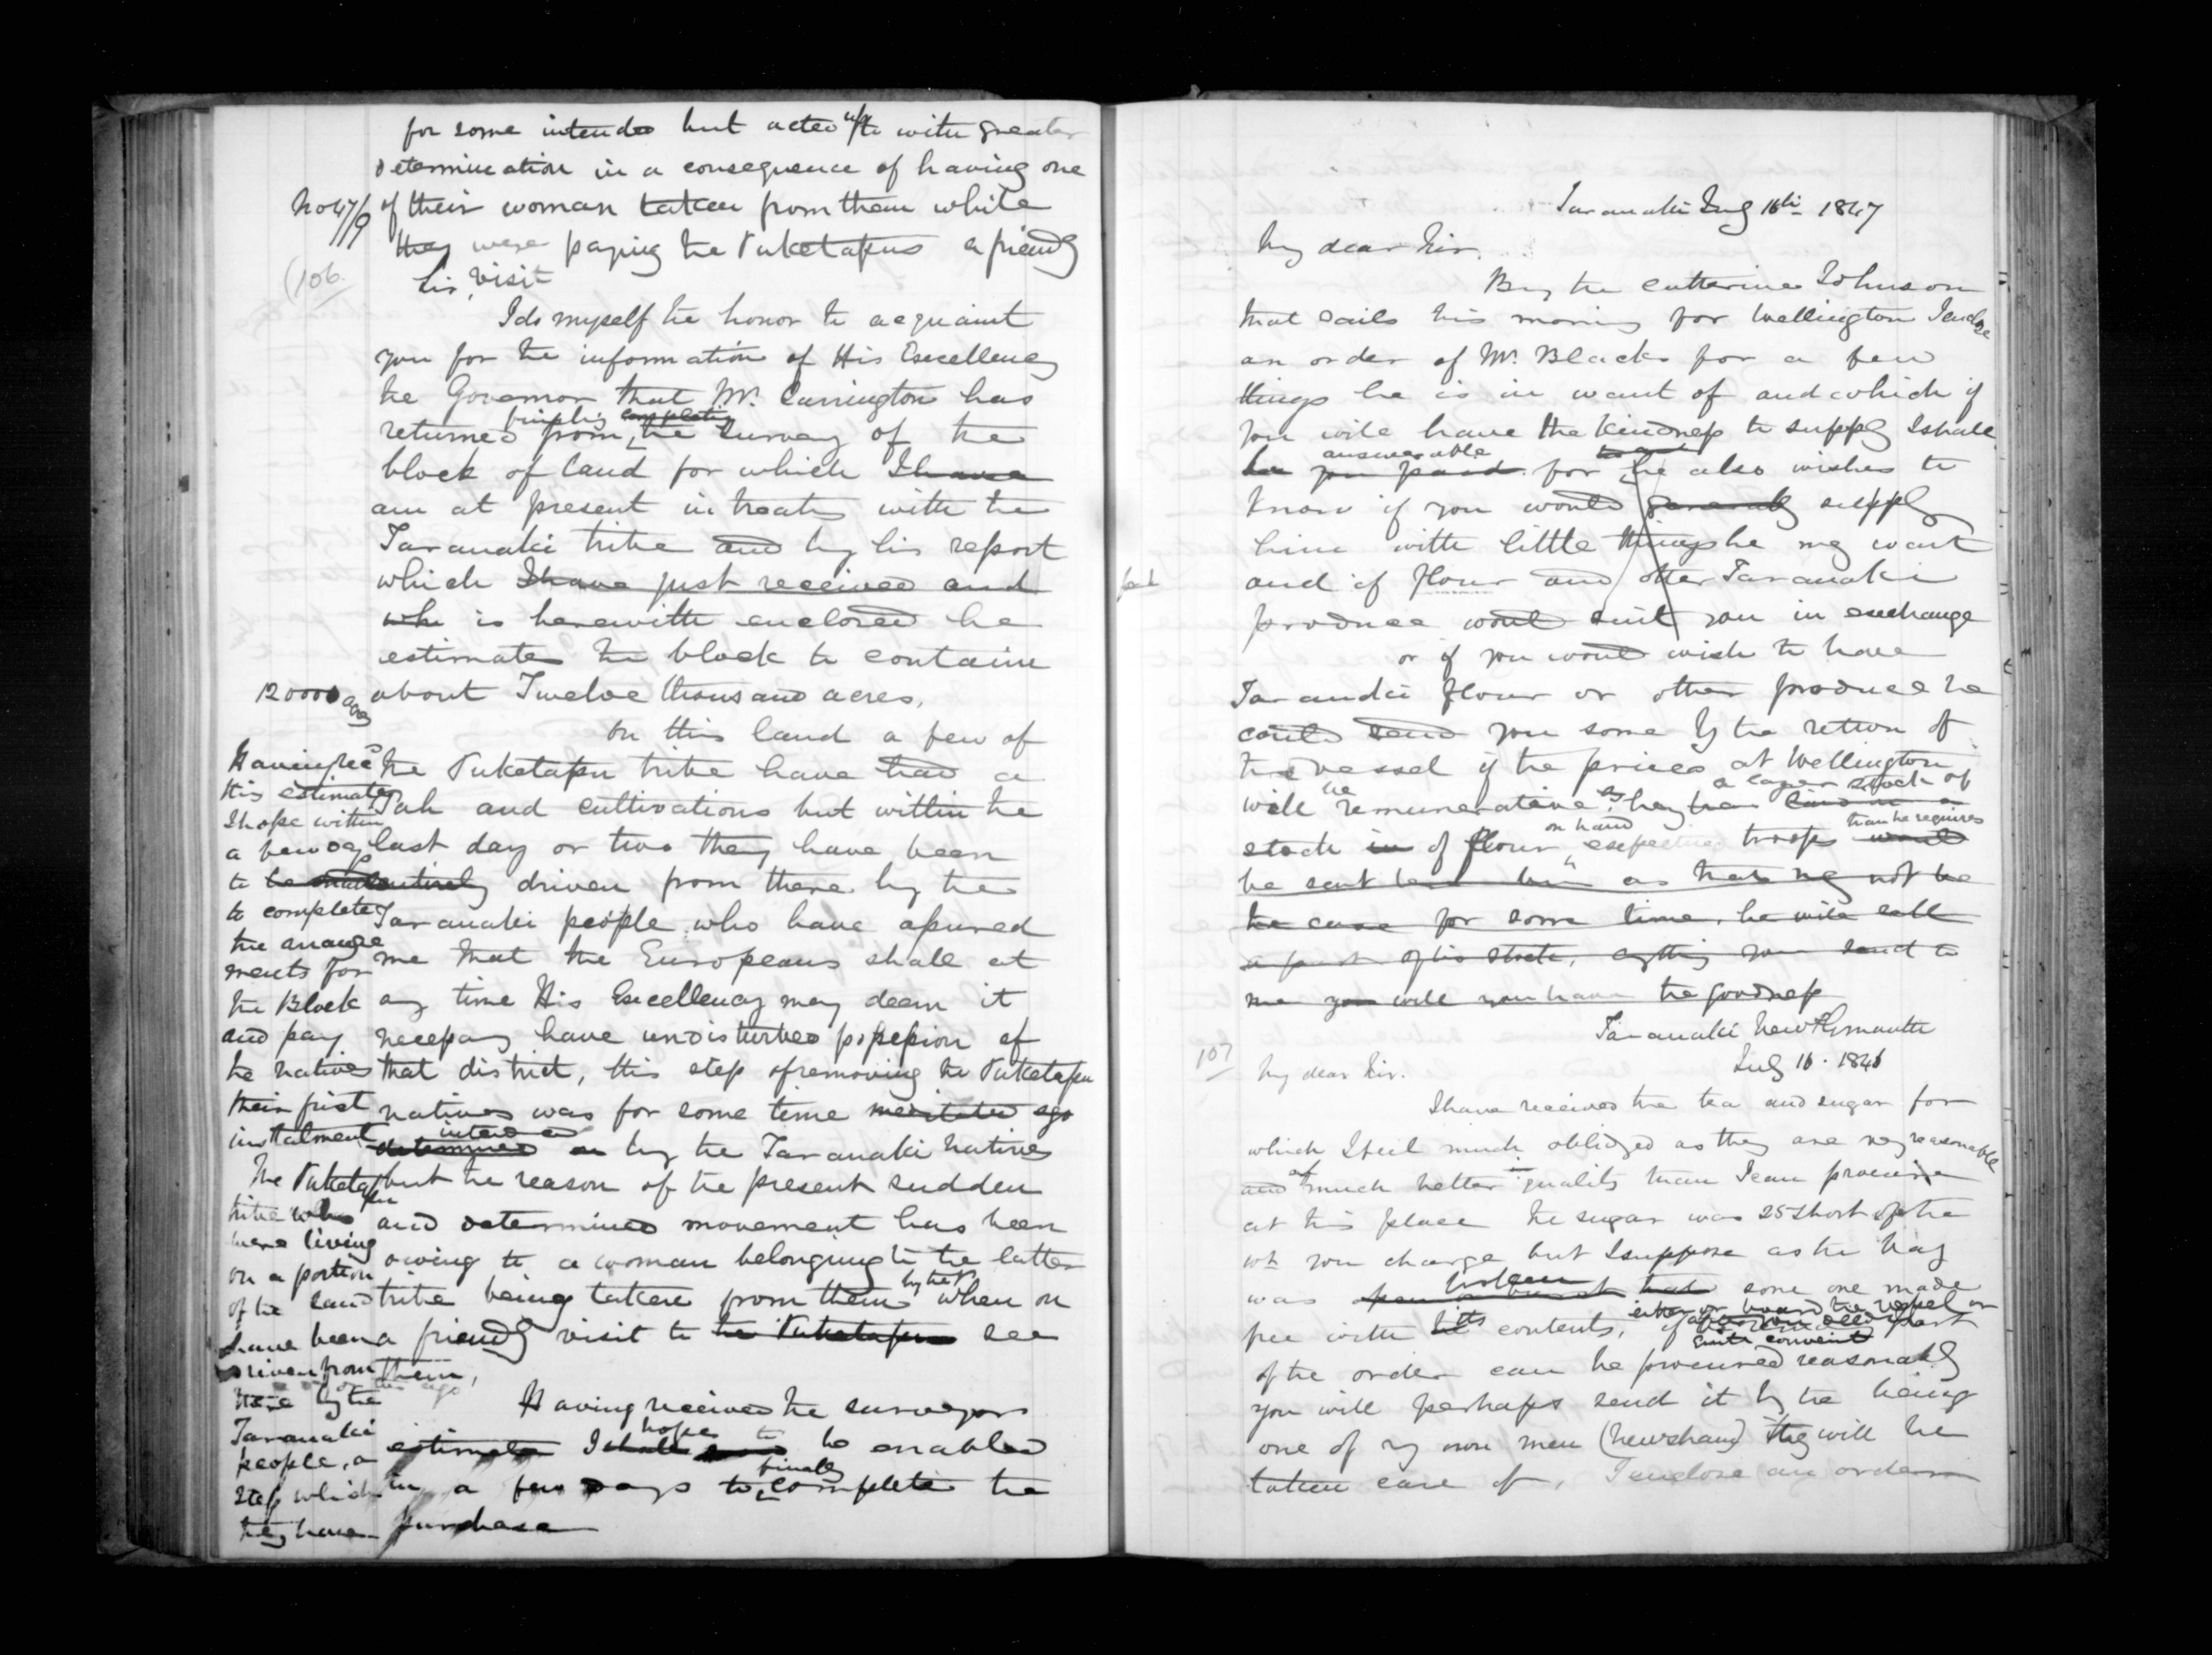 for some intended but acted up to with greater
determination in a consequence of having one
No 47/9 of their woman taken from them while
they were paying the Puketapus a friendly
Sir, visit
(106.
I do myself the honor to acquaint
you for the information of His Excellency
the Governor that Mr. Carrington has
finishing completing
returned from the survey of the
block of land for which I have
am at present in treaty with the
Taranaki tribe and by his report
which I have just received and
whi is herewith enclosed he
estimates the block to contain
12000 acres
about Twelve thousand acres,
On this land a few of
the Puketapu tribe have had a
Pah and cultivations but within the
last day or two they have been
entirely driven from there by the
Taranaki people, who have assured
me that the Europeans shall at
any time His Excellency may deem it
necessary have undisturbed possession of
that district, this step of removing the Puketapu
natives was for some time meditated ago
intended
determined on by the Taranaki natives
but the reason of the present sudden
and determined movement has been
owing to a woman belonging to the latter
tribe being taken from them by the P when on
a friendly visit to the Puketapu see
them,
Having recd
this estimate
I hope within
a few days
to be
to complete
the arrange
ments for
the Block
and pay
the natives
their first
instalment
The Puketapu
tribe who
were living
on a portion
of the land
have been
driven from
here by the
Taranaki
people, a
step which
they have
Having received the surveyors
hope to
estimate I shall be enabled
finally
in a few days to complete the
purchase
Taranaki July 16th 1847
My dear Sir,
By the Catherine Johnson
that sails this morning for Wellington I enclose
an order of Mr. Blacks for a few
things he is in want of and which if
you will have the kindness to supply I shall
answerable
be you paid for he also wishes to
know if you would generally supply
him with little things he may want
and if flour and other Taranaki
produce would suit you in exchange
or if you would wish to have
Taranaki flour or other produce he
could send you some by the return of
the vessel if the prices at Wellington
a larger stock of
will be remunerative as he has
on hand than he requires
stock in of flour expecting troops would
be sent him as that may not be
the case for some time, he will sell
a part of his stock, anything you send to
me you will you have the goodness
Taranaki New Plymouth
July 16. 1846
107
My dear Sir.
I have received the tea and sugar for
which I feel much obliged as they are very reasonable
and of much better quality than I can procure
at this place the sugar was 25 short of the
wt you charge but I suppose as the bag
was broken that some one made
either on board the vessel or
free with its contents, if part
of the order can be procured reasonably
you will perhaps send it by the being
one of my own men (Newshaw) they will be
taken care of, I enclose an order